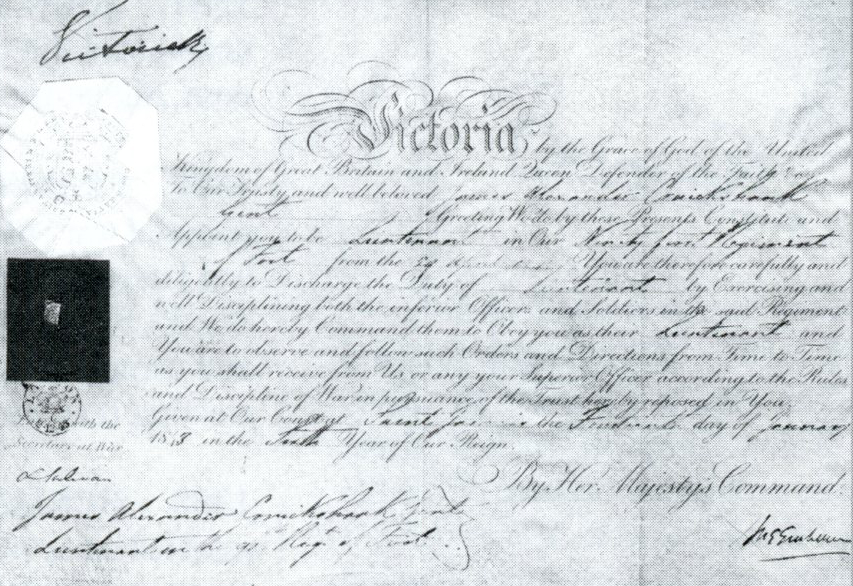 Victoria
Victoria by the Grace of God of the United
Kingdom of Great Britain and Ireland Queen Defender of the Faith &c
To Our Trusty and well beloved James Alexander Cruikshank
Gent Greeting We do by these Presents Constitute and
Appoint you to be Lieutenant in Our Ninety first Regiment
of Foot from the You are therefore carefully and
diligently to Discharge the Duty of Lieutenant by Exercising and
well Disciplining both the inferior Officers and Soldiers in the said Regiment
and We do hereby Command them to Obey you as their Lieutenant and
You are to observe and follow such Orders and Directions from Time to Time
as you shall receive from Us or any your Superior Officer according to the Rules
and Discipline of War in pursuance of the Trust hereby reposed in You
Given at Our Court at Saint James's the day of January
1843 in the Year of Our Reign.
with the
Secretary at War
By Her Majesty's Command.
James Alexander Cruikshank Gent
Lieutenant in the 91st Regt of Foot